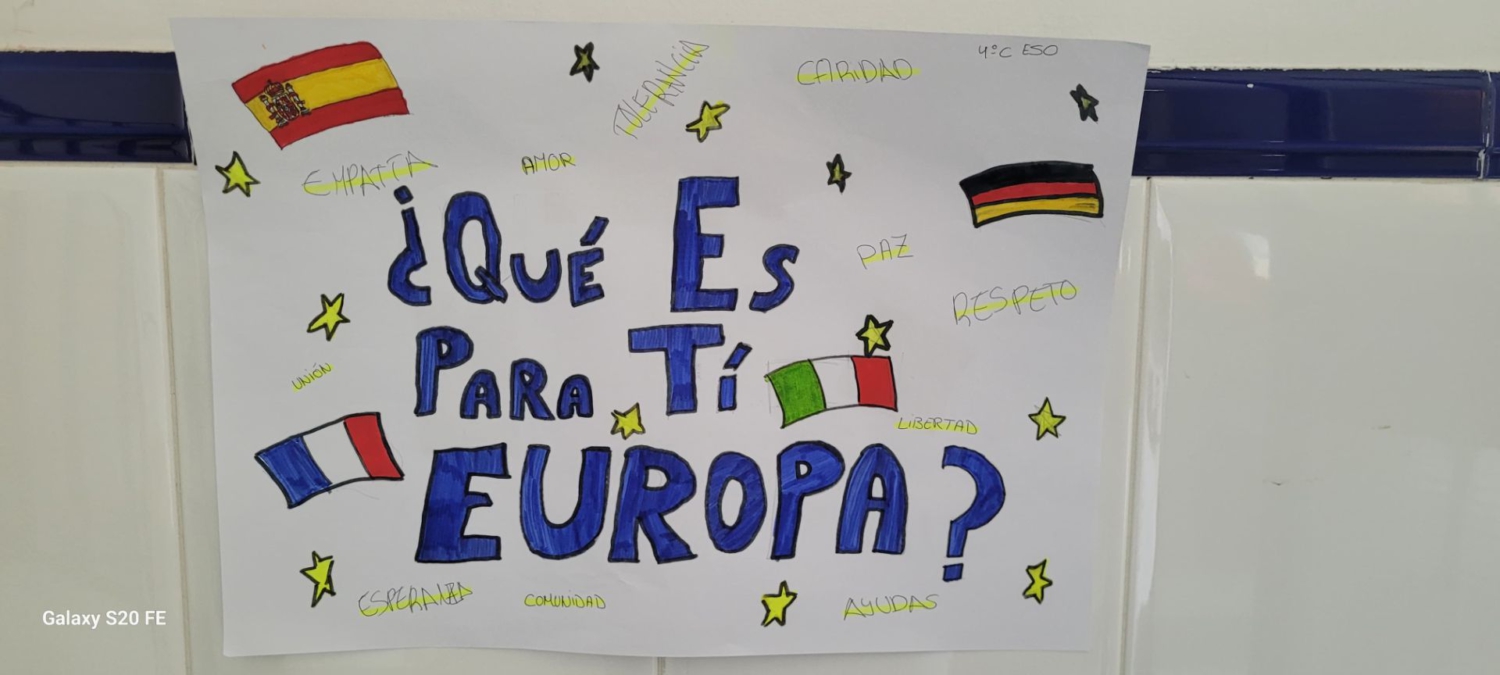 4º C ESO
TOLERANCIA
CARIDAD
EMPATÍA
AMOR
¿QUÉ ES
PAZ
RESPETO
PARA TÍ
UNIÓN
LIBERTAD
EUROPA?
ESPERANZA
COMUNIDAD
AYUDAS
Galaxy S20 FE